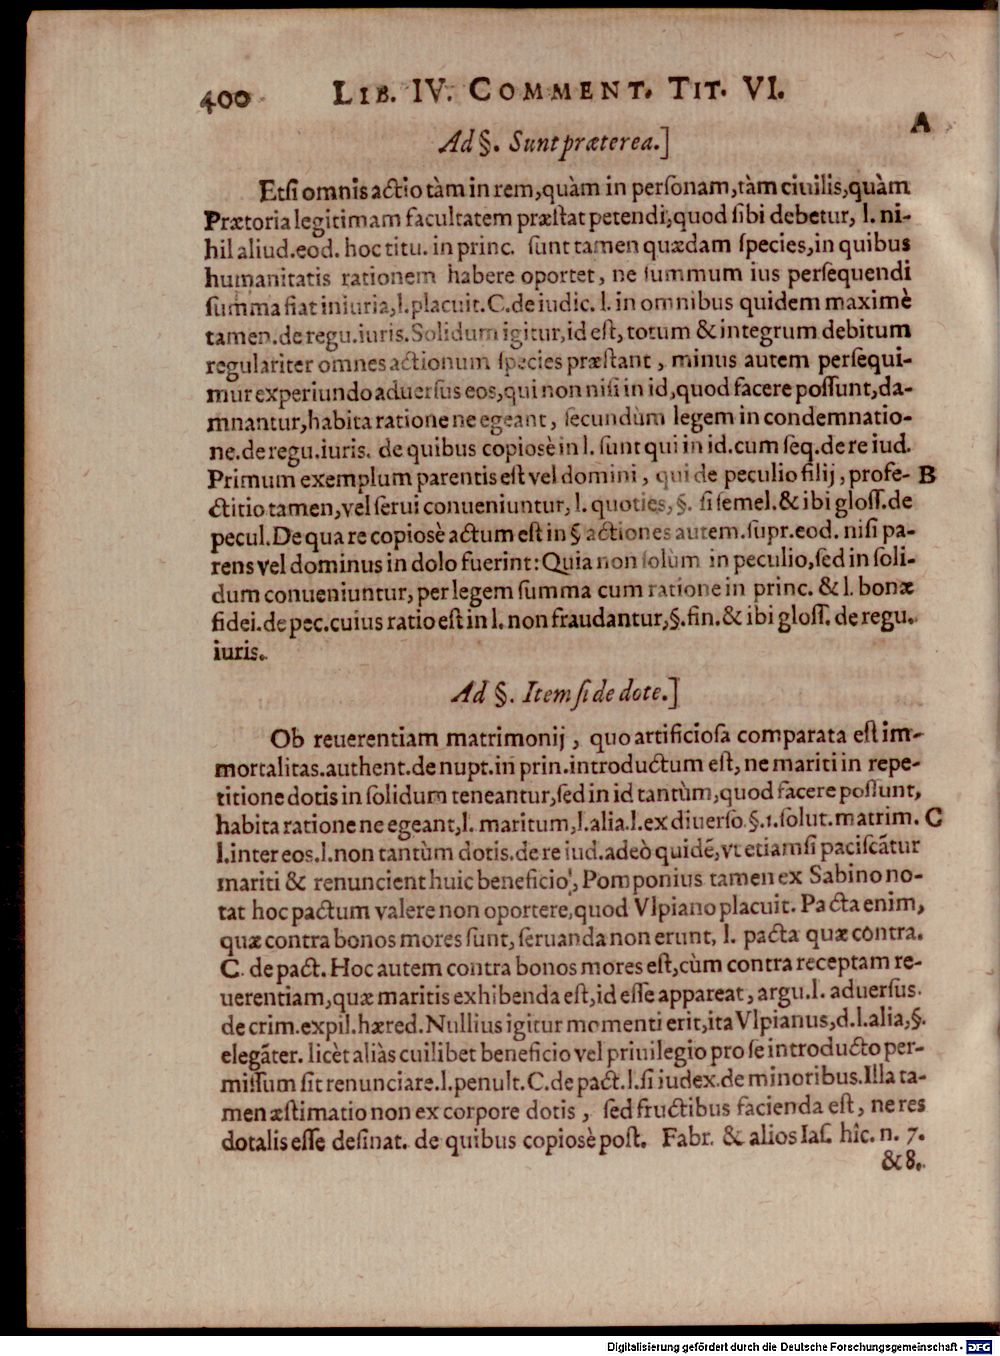 400 LIB. IV. COMMENT. TIT. VI.
A
Ad §. Sunt præterea.]
Etſi omnis actio tàm in rem, quàm in perſonam, tàm ciuilis, quàm
Prætoria legitimam facultatem præſtat petendi, quod ſibi debetur, l. ni-
hil aliud. eod. hoc titu. in princ. ſunt tamen quædam ſpecies, in quibus
humanitatis rationem habere oportet, ne ſummum ius perſequendi
ſumma fiat iniuria, l. placuit. C. de iudic. l. in omnibus quidem maximè
tamen. de regu. iuris. Solidum igitur, id eſt, totum & integrum debitum
regulariter omnes actionum ſpecies præſtant, minus autem perſequi-
mur experiundo aduerſus eos, qui non niſi in id, quod facere poſſunt, da-
mnantur, habita ratione ne egeant, ſecundùm legem in condemnatio-
ne. de regu. iuris. de quibus copiosè in l. ſunt qui in id. cum ſeq. de re iud.
Primum exemplum parentis eſt vel domini, qui de peculio filij, profe- B
ctitio tamen, vel ſerui conueniuntur, l. quoties, §. ſi ſemel. & ibi gloſſ. de
pecul. De qua re copiosè actum eſt in § actiones autem. ſupr. eod. niſi pa-
rens vel dominus in dolo fuerint: Quia non ſolùm in peculio, ſed in ſoli-
dum conueniuntur, per legem ſumma cum ratione in princ. & l. bonæ
fidei. de pec. cuius ratio eſt in l. non fraudantur, §. fin. & ibi gloſſ. de regu.
iuris.
Ad §. Item ſi de dote.]
Ob reuerentiam matrimonij, quo artificioſa comparata eſt im-
mortalitas. authent. de nupt. in prin. introductum eſt, ne mariti in repe-
titione dotis in ſolidum teneantur, ſed in id tantùm, quod facere poſſunt,
habita ratione ne egeant, l. maritum, l. alia. l. ex diuerſo. §. 1. ſolut. matrim. C
l. inter eos. l. non tantùm dotis. de re iud. adeò quidē, vt etiamſi paciſcātur
mariti & renuncient huic beneficio, Pomponius tamen ex Sabino no-
tat hoc pactum valere non oportere, quod Vlpiano placuit. Pacta enim,
quæ contra bonos mores ſunt, ſeruanda non erunt, l. pacta quæ contra.
C. de pact. Hoc autem contra bonos mores eſt, cùm contra receptam re-
uerentiam, quæ maritis exhibenda eſt, id eſſe appareat, argu. l. aduerſus.
de crim. expil. hæred. Nullius igitur momenti erit, ita Vlpianus, d. l. alia, §.
elegāter. licèt aliàs cuilibet beneficio vel priuilegio pro ſe introducto per-
miſſum ſit renunciare. l. penult. C. de pact. l. ſi iudex. de minoribus. Illa ta-
men æſtimatio non ex corpore dotis, ſed fructibus facienda eſt, ne res
dotalis eſſe deſinat. de quibus copiosè poſt. Fabr. & alios Iaſ. hîc. n. 7.
& 8.
Digitalisierung gefördert durch die Deutsche Forschungsgemeinschaft - DFG